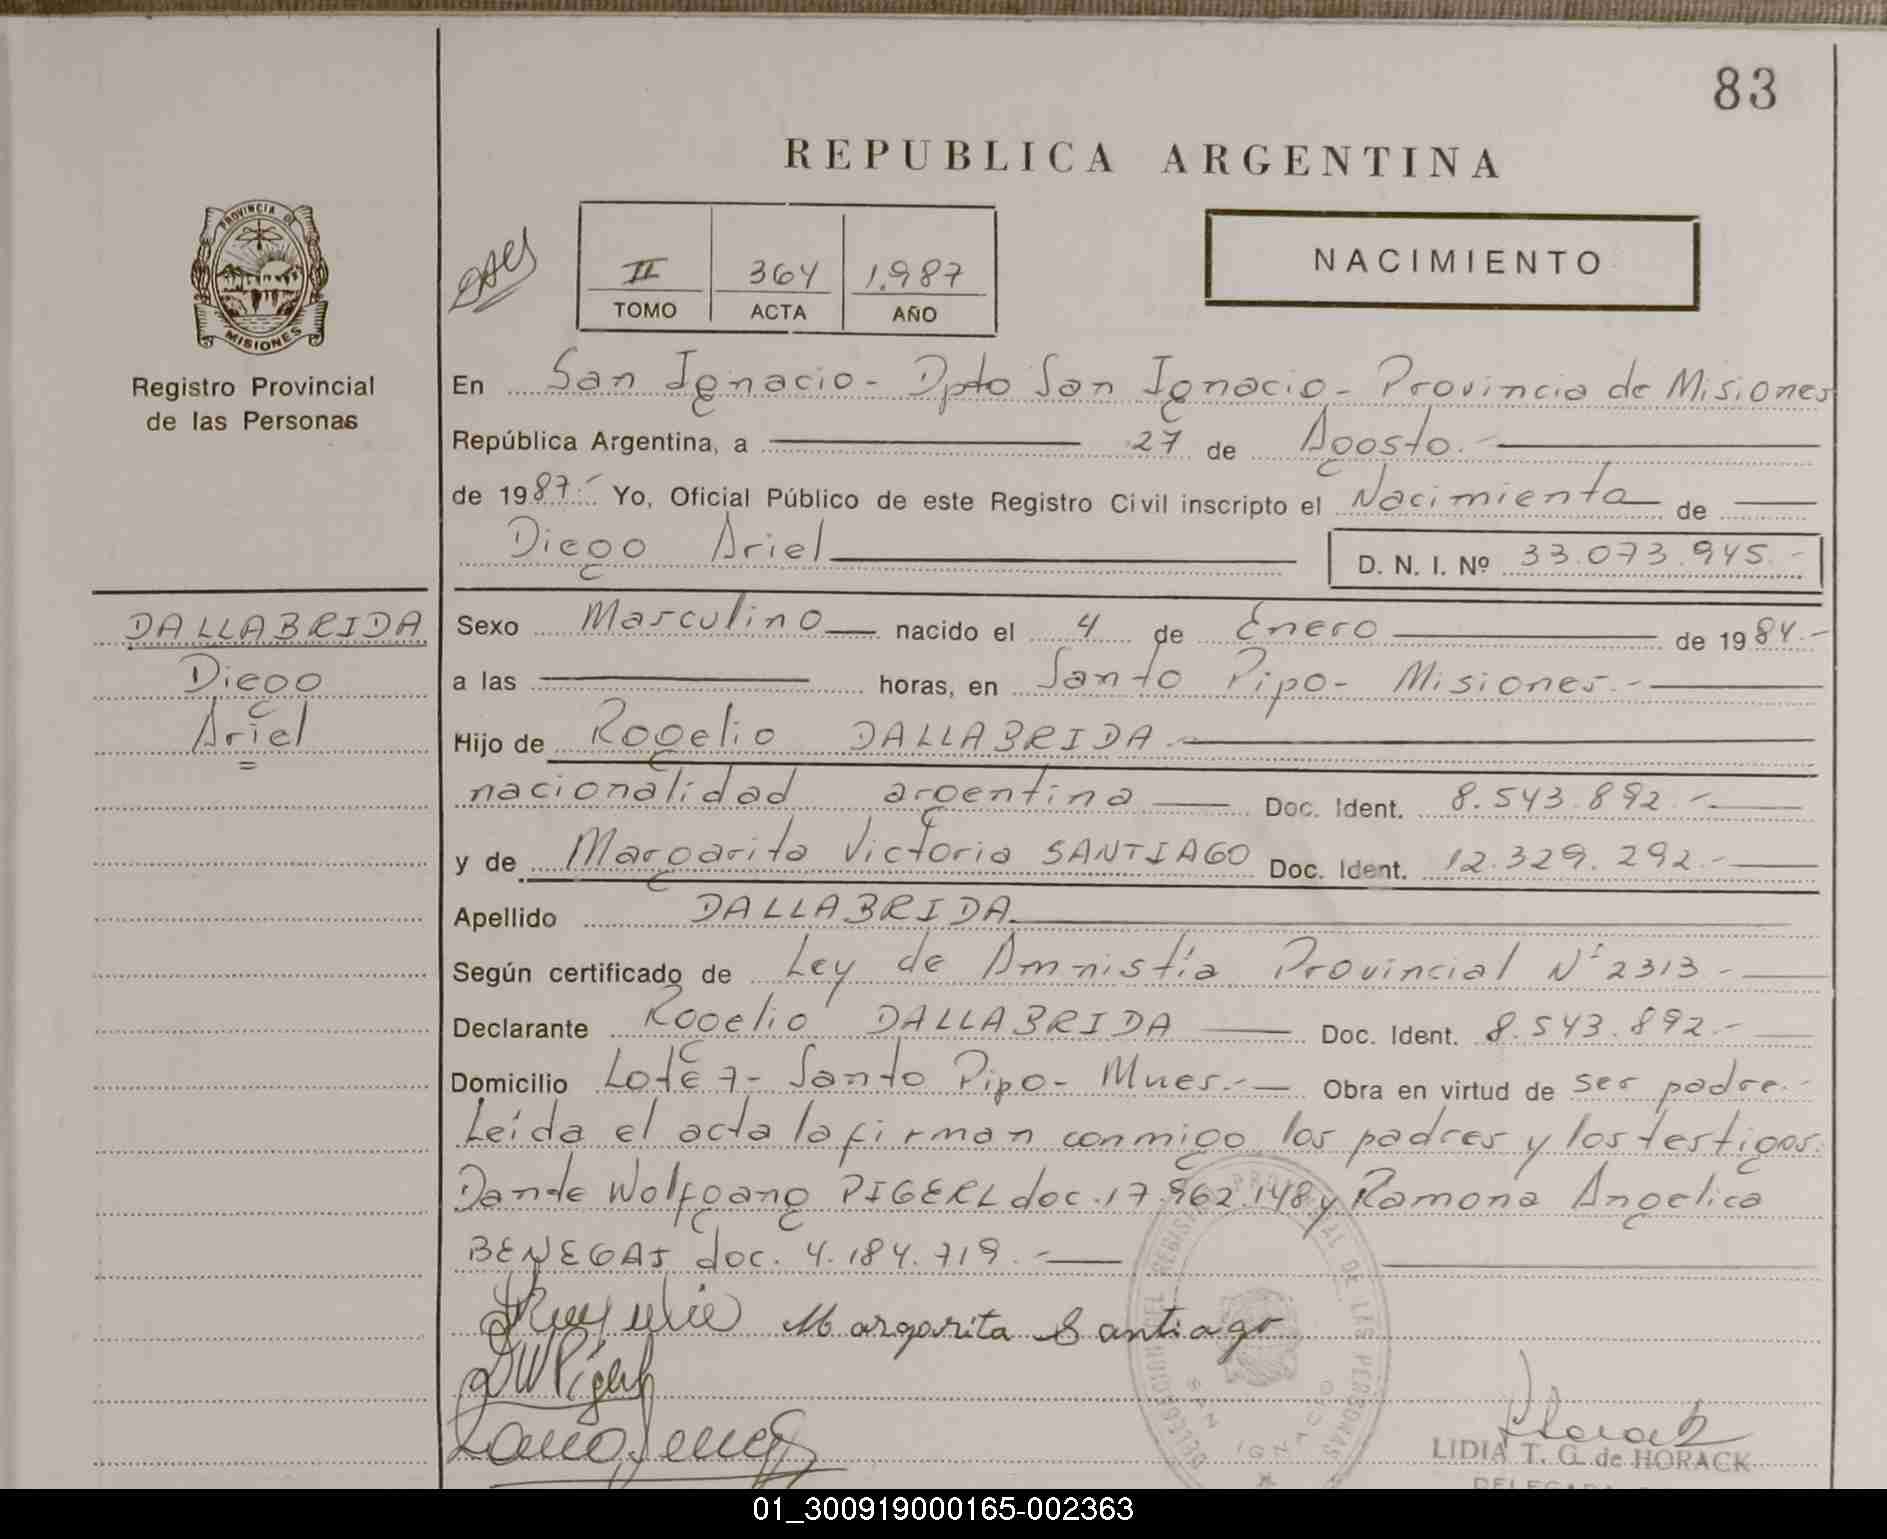 83
REPUBLICA ARGENTINA
PROVINCIA D
MISIONES
Registro Provincial
de las Personas
II 364 1.987
TOMO ACTA AÑO
NACIMIENTO
En San Ignacio - Dpto San Ignacio - Provincia de Misiones
República Argentina, a 27 de Agosto.-
de 1987.- Yo, Oficial Público de este Registro Civil inscripto el Nacimiento de
Diego Ariel D. N. I. Nº 33.073.945.-
DALLABRIDA
Diego
Ariel
Sexo Masculino nacido el 4 de Enero de 1984.-
a las horas, en Santo Pipo - Misiones.-
Hijo de Rogelio DALLABRIDA.-
nacionalidad argentina Doc. Ident. 8.543.892.-
y de Margarita Victoria SANTIAGO Doc. Ident. 12.329.292.-
Apellido DALLABRIDA
Según certificado de Ley de Amnistía Provincial Nº 2313.-
Declarante Rogelio DALLABRIDA Doc. Ident. 8.543.892.-
Domicilio Lote 7 - Santo Pipo - Mnes.- Obra en virtud de ser padre.-
Leída el acta la firman conmigo los padres y los testigos.
Dante Wolfgang PIGERL doc. 17.962.148 y Ramona Angelica
BENEGAS doc. 4.184.719.-
Margarita Santiago
DWPigerl
DELEGACION DEL REGISTRO PROVINCIAL DE LAS PERSONAS
SAN IGNACIO
Horack
LIDIA T. G. de HORACK
01_300919000165-002363